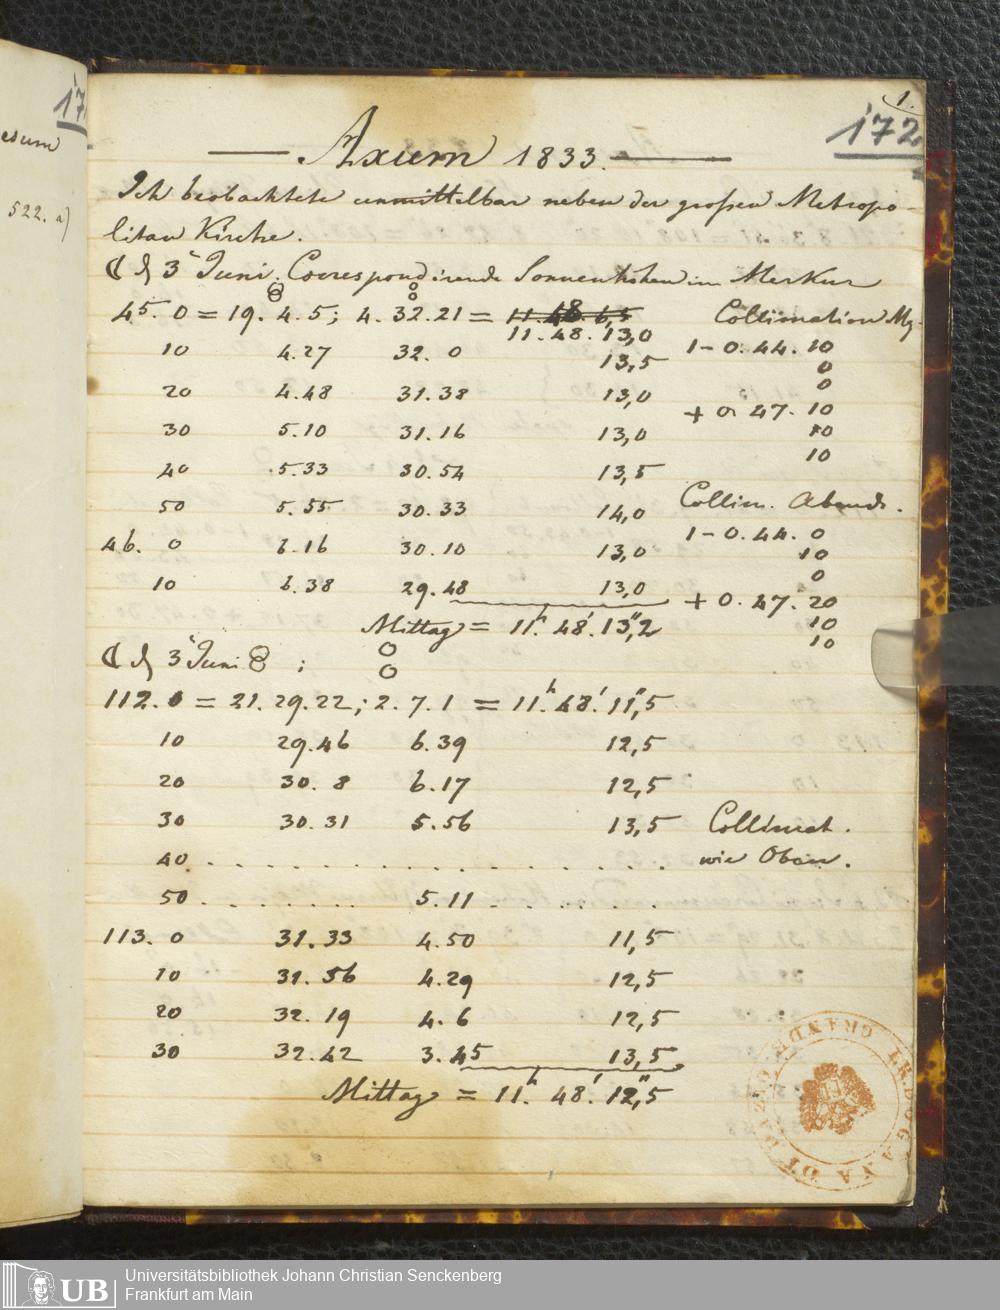 17
esum
522. a)
1.
172
Axum 1833.
Ich beobachtete unmittelbar neben der großen Metropo-
litan Kirche.
☾ d. 3t Juni. Correspondirende Sonnenhöhen im Merkur
45. 0 = 19. 4. 5; 4. 32. 21 = 11. 48 6,5 Collimation Mg.
11. 48. 13,0
10 4.27 32. 0 13,5 1 - 0. 44. 10
0
20 4.48 31.38 13,0 0
+ 0. 47. 10
30 5.10 31.16 13,0 10
10
40 5.33 30.54 13,5
50 5.55 30.33 14,0 Collim. Abends.
1 - 0. 44. 0
46. 0 6.16 30.10 13,0 10
0
10 6.38 29.48 13,0 + 0. 47. 20
Mittag = 11h. 48'. 13",2 10
10
☾ d. 3t Juni ;
112. 0 = 21. 29. 22; 2. 7. 1 = 11h. 48'. 11",5
10 29.46 6.39 12,5
20 30. 8 6.17 12,5
30 30.31 5.56 13,5 Collimat.
40 . . . . . . . . . . . . . wie Oben.
50 . . . . . . 5.11 . . . . . .
113. 0 31.33 4.50 11,5
10 31.56 4.29 12,5
20 32.19 4. 6 12,5
30 32.42 3.45 13,5
Mittag = 11h. 48'. 12",5
UB
Universitätsbibliothek Johann Christian Senckenberg
Frankfurt am Main